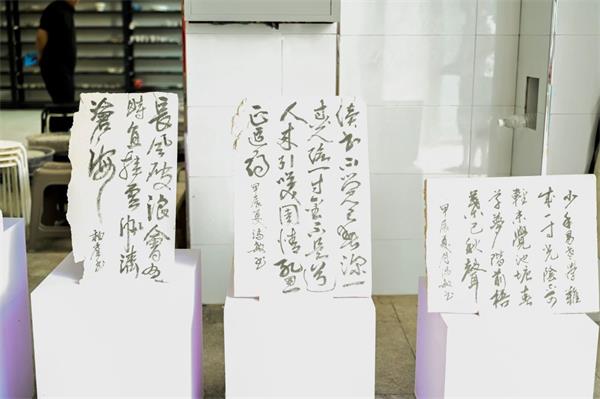 長風破浪會有
時直挂雲帆濟
滄海
读书不觉已春深一
寸光陰一寸金不是道
人来引笑周情孔思
正追尋
甲辰夏
少年易老学難
成一寸光陰不可
輕未覺池塘春
草夢階前梧
葉已秋聲
甲辰夏月